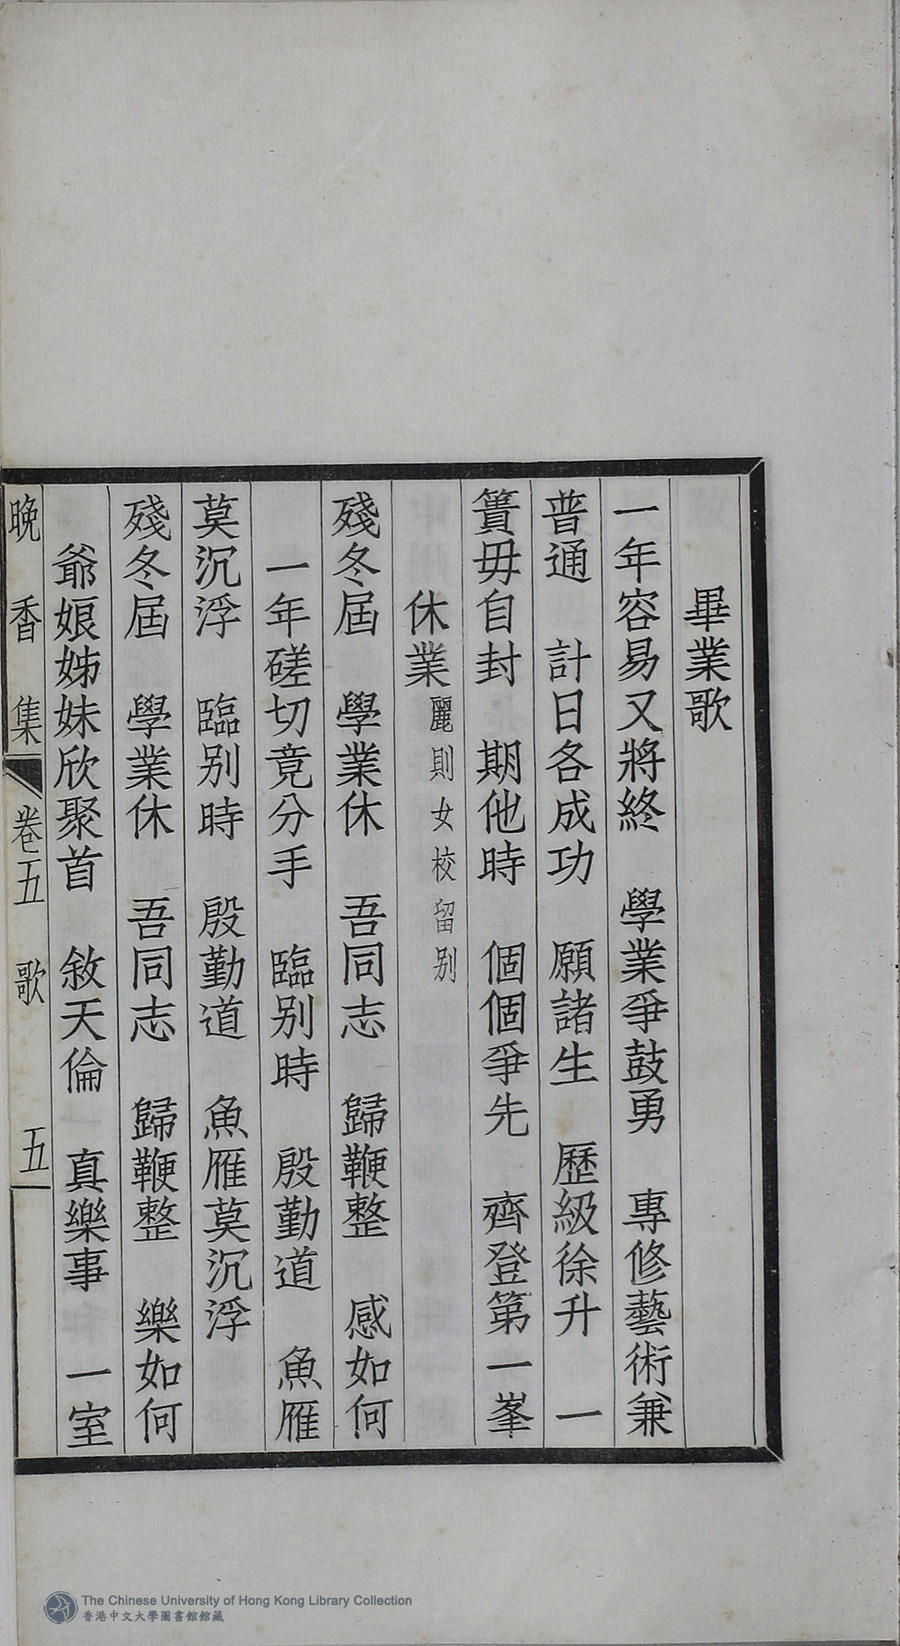 畢業歌
一年容易又將終　學業爭鼓勇　專修藝術兼
普通　計日各成功　願諸生　歷級徐升　一
簣毋自封　期他時　個個爭先　齊登第一峯
休業麗則女校留別
殘冬屆　學業休　吾同志　歸鞭整　感如何
一年磋切竟分手　臨別時　殷勤道　魚雁
莫沉浮　臨別時　殷勤道　魚雁莫沉浮
殘冬屆　學業休　吾同志　歸鞭整　樂如何
爺娘姊妹欣聚首　敘天倫　真樂事　一室
晚香集　卷五　歌　五
The Chinese University of Hong Kong Library Collection
香港中文大學圖書館館藏